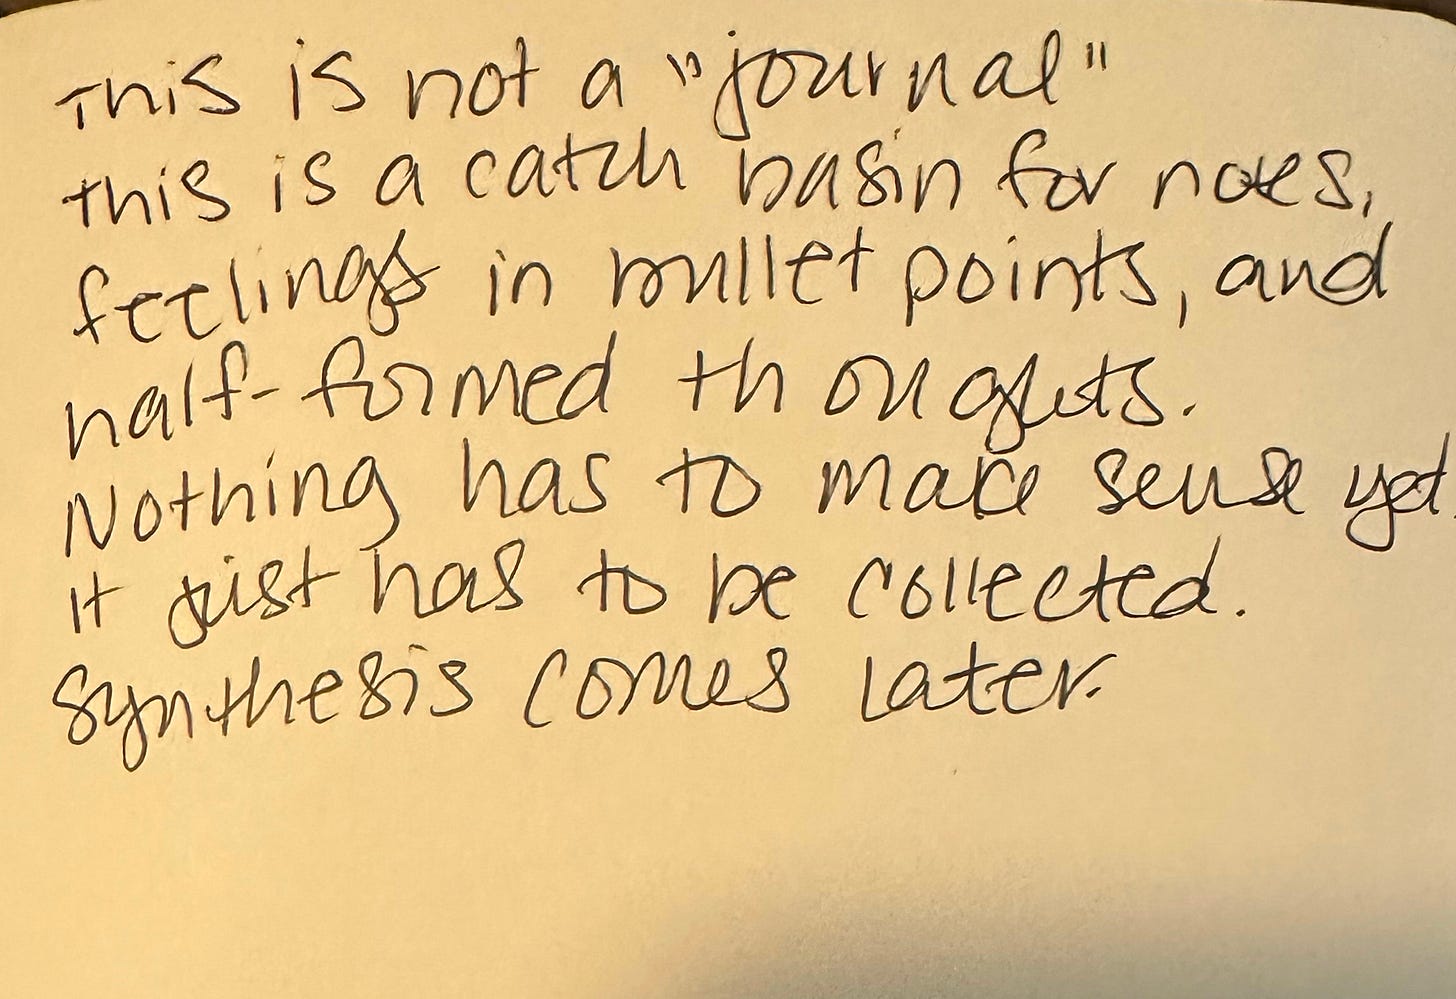 This is not a "journal"
this is a catch basin for notes,
feelings in bullet points, and
half-formed thoughts.
Nothing has to make sense yet.
It just has to be collected.
Synthesis comes later.